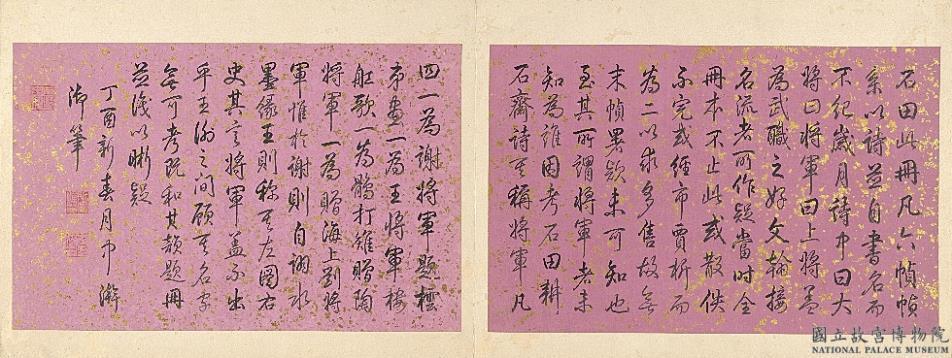 石田此冊凡六幀幀
系以詩並自書名而
不紀歲月詩中曰大
將曰將軍曰上將蓋
為武職之好文翰接
名流者所作疑當時全
冊本不止此或散佚
不完或經市賈析而
為二以求多售故無
末幀署款未可知也
至其所謂將軍者未
知為誰因考石田耕
石齋詩其稱將軍凡
四一為謝將軍題
畫一為王將軍樓
舡歌一為鵰打雉贈陶
將軍一為贈海上劉將
軍惟於謝則自詡水
墨緣王則稱其左圖右
史其言將軍蓋不出
乎王謝之間顧其名字
無可考既和其韻題冊
並識以晰疑
丁酉新春月中澣
御筆
國立故宮博物院
NATIONAL PALACE MUSEUM